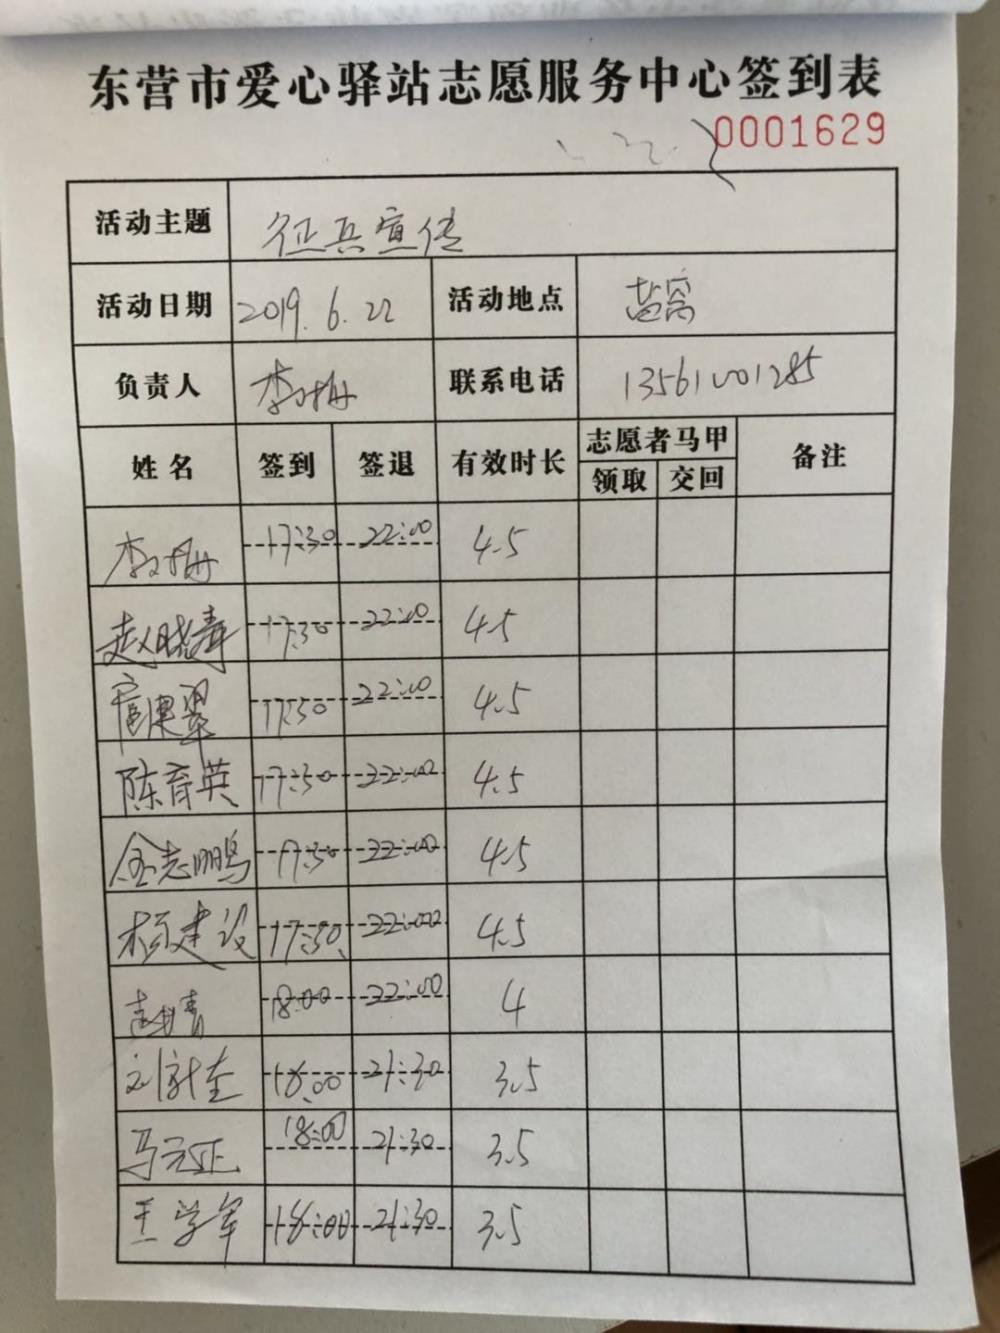 东营市爱心驿站志愿服务中心签到表
0001629
活动主题 征兵宣传
活动日期 2019.6.22 活动地点 盐窝
负责人 李梅 联系电话 13561001285
姓名 签到 签退 有效时长 志愿者马甲 备注
领取 交回
李梅 17:30 22:00 4.5
赵晓寿 17:30 22:00 4.5
17:30 22:00 4.5
陈育英 17:30 22:00 4.5
金志鹏 17:30 22:00 4.5
杨建设 17:30 22:00 4.5
18:00 22:00 4
18:00 21:30 3.5
马元正 18:00 21:30 3.5
王学军 18:00 21:30 3.5